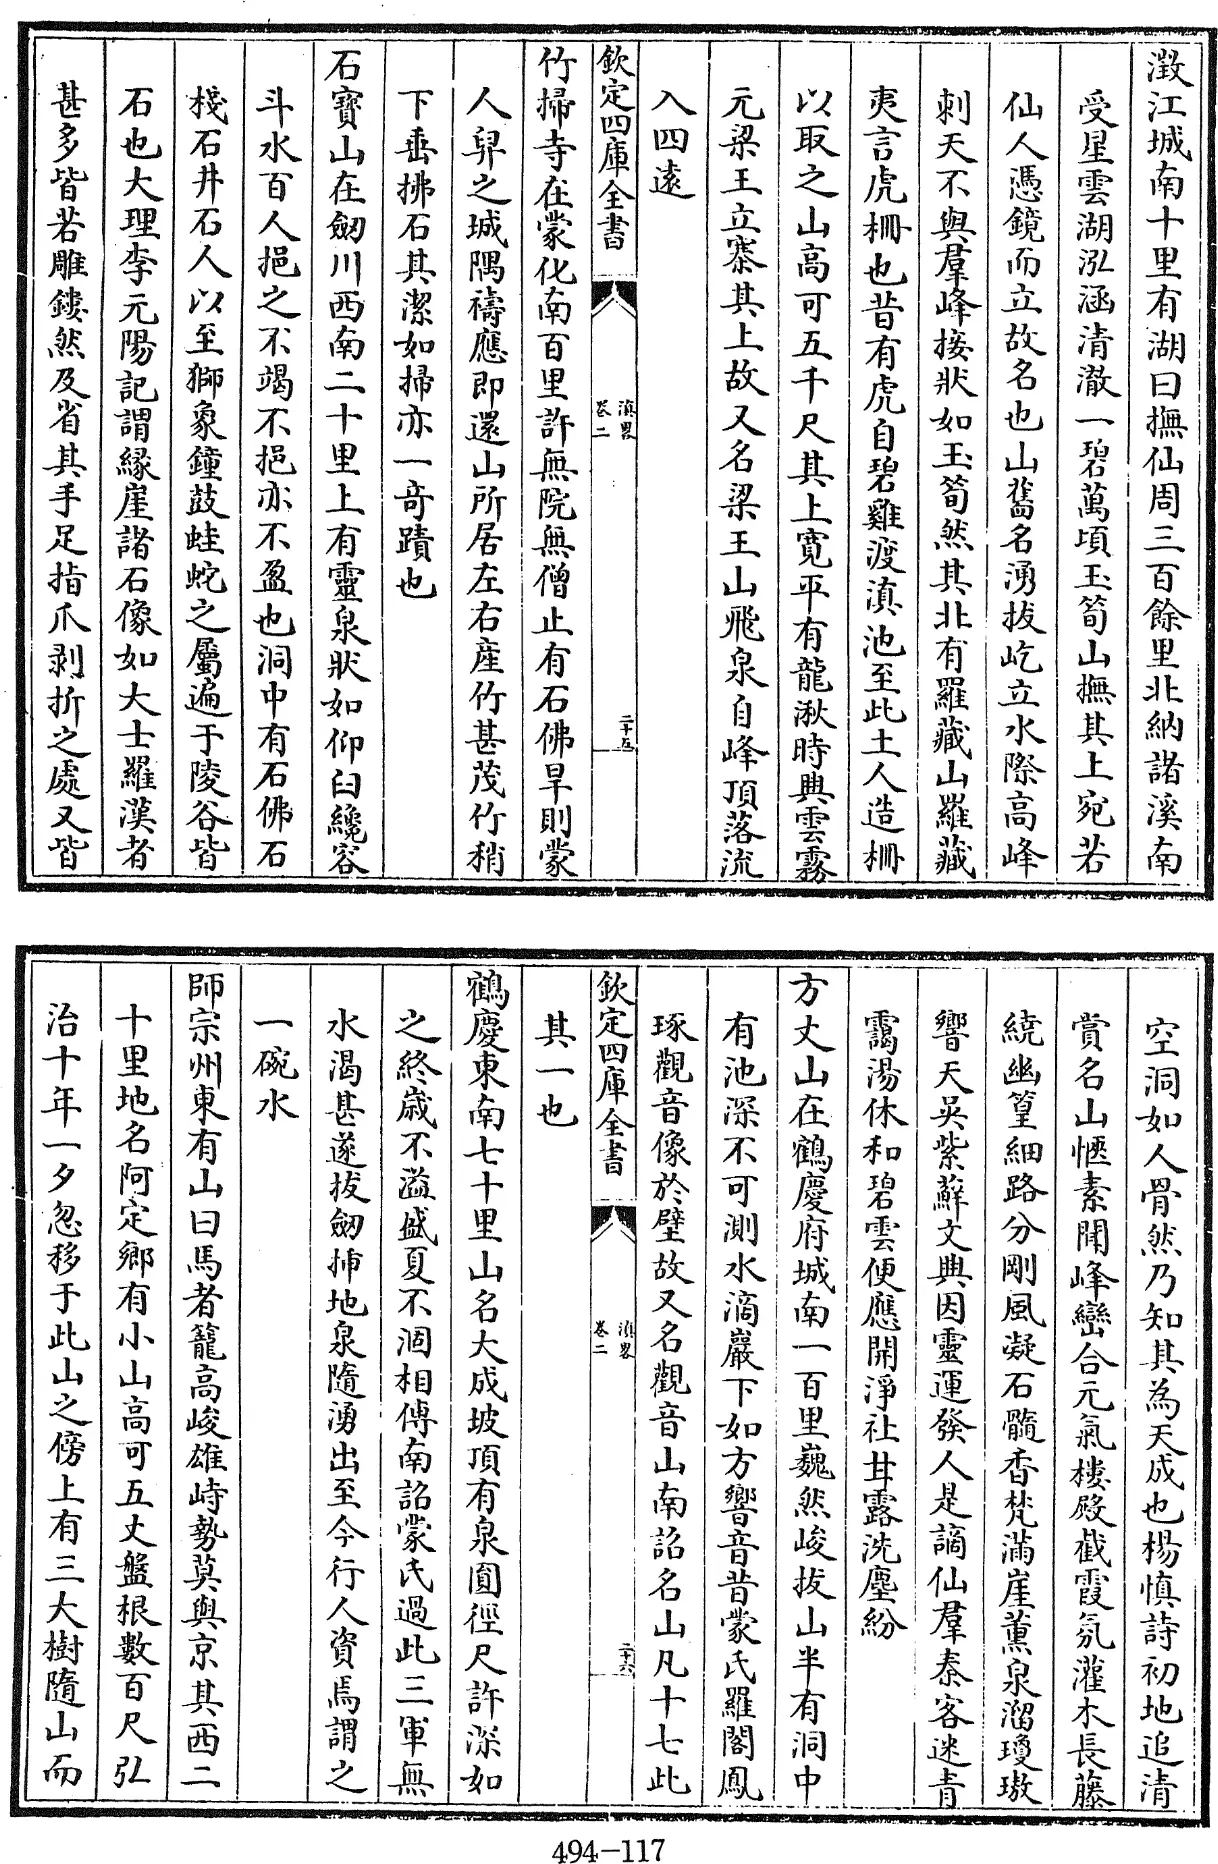 澂江城南十里有湖曰撫仙周三百餘里北納諸溪南
受星雲湖泓涵清澈一碧萬頃玉筍山撫其上宛若
仙人憑鏡而立故名也山舊名湧拔屹立水際高峰
刺天不與羣峰接狀如玉筍然其北有羅藏山羅藏
夷言虎柵也昔有虎自碧雞渡滇池至此土人造柵
以取之山高可五千尺其上寛平有龍湫時興雲霧
元梁王立寨其上故又名梁王山飛泉自峰頂落流
入四遠
欽定四庫全書
滇畧
卷二
二十五
竹掃寺在蒙化南百里許無院無僧止有石佛旱則蒙
人舁之城隅禱應即還山所居左右産竹甚茂竹稍
下垂拂石其潔如掃亦一奇蹟也
石寶山在劒川西南二十里上有靈泉狀如仰臼纔容
斗水百人挹之不竭不挹亦不盈也洞中有石佛石
棧石井石人以至獅象鐘鼓蛙蛇之屬遍于陵谷皆
石也大理李元陽記謂縁崖諸石像如大士羅漢者
甚多皆若雕鏤然及省其手足指爪剥折之處又皆
空洞如人骨然乃知其為天成也楊慎詩初地追清
賞名山愜素聞峰巒合元氣樓殿截霞氛灌木長藤
繞幽篁細路分剛風凝石髓香梵滿崖薰泉溜瓊璈
響天吴紫蘚文興因靈運發人是謫仙羣秦客迷青
靄湯休和碧雲便應開淨社甘露洗塵紛
方丈山在鶴慶府城南一百里巍然峻拔山半有洞中
有池深不可測水滴巖下如方響音昔蒙氏羅閣鳳
琢觀音像於壁故又名觀音山南詔名山凡十七此
欽定四庫全書
滇畧
卷二
二十六
其一也
鶴慶東南七十里山名大成坡頂有泉圓徑尺許深如
之終歲不溢盛夏不涸相傳南詔蒙氏過此三軍無
水渴甚遂拔劒揷地泉隨湧出至今行人資焉謂之
一碗水
師宗州東有山曰馬者籠高峻雄峙勢莫與京其西二
十里地名阿定鄉有小山高可五丈盤根數百尺弘
治十年一夕忽移于此山之傍上有三大樹隨山而
494-117